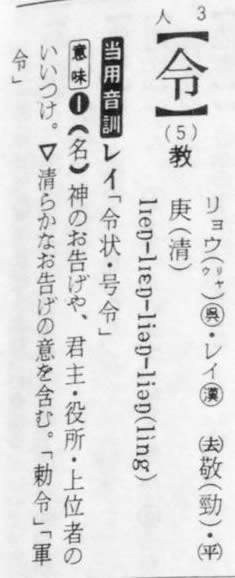 人3
【令】
(5)教
リョウ(リャウ)呉・レイ漢 去敬(勁)・平
庚(清)
lıeŋ–lıɛŋ–liəŋ–liəŋ(ling)
当用音訓 レイ「令状・号令」
意味 ❶(名)神のお告げや、君主・役所・上位者の
いいつけ。▽清らかなお告げの意を含む。「勅令」「軍
令」